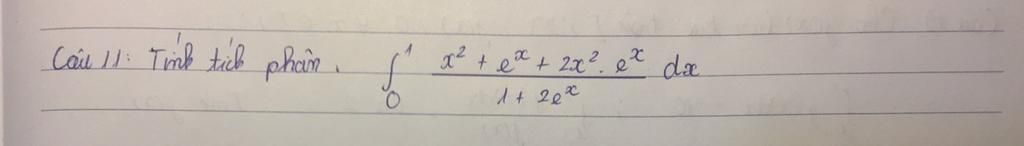 Câu 11: Tính tích phân. ∫₀¹ (x² + eˣ + 2x². eˣ)/(1 + 2eˣ) dx